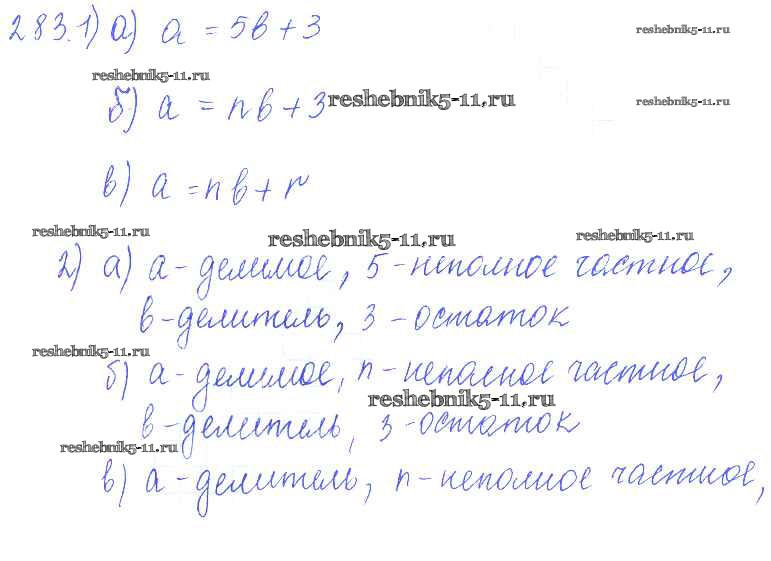 283.1) а) а = 5в + 3 reshebnik5-11.ru
reshebnik5-11.ru
б) а = nв + 3 reshebnik5-11.ru reshebnik5-11.ru
в) а = nв + r
reshebnik5-11.ru reshebnik5-11.ru reshebnik5-11.ru
2) а) а - делимое, 5 - неполное частное,
в - делитель, 3 - остаток
reshebnik5-11.ru
б) а - делимое, n - неполное частное,
reshebnik5-11.ru
в - делитель, 3 - остаток
reshebnik5-11.ru
в) а - делитель, n - неполное частное,